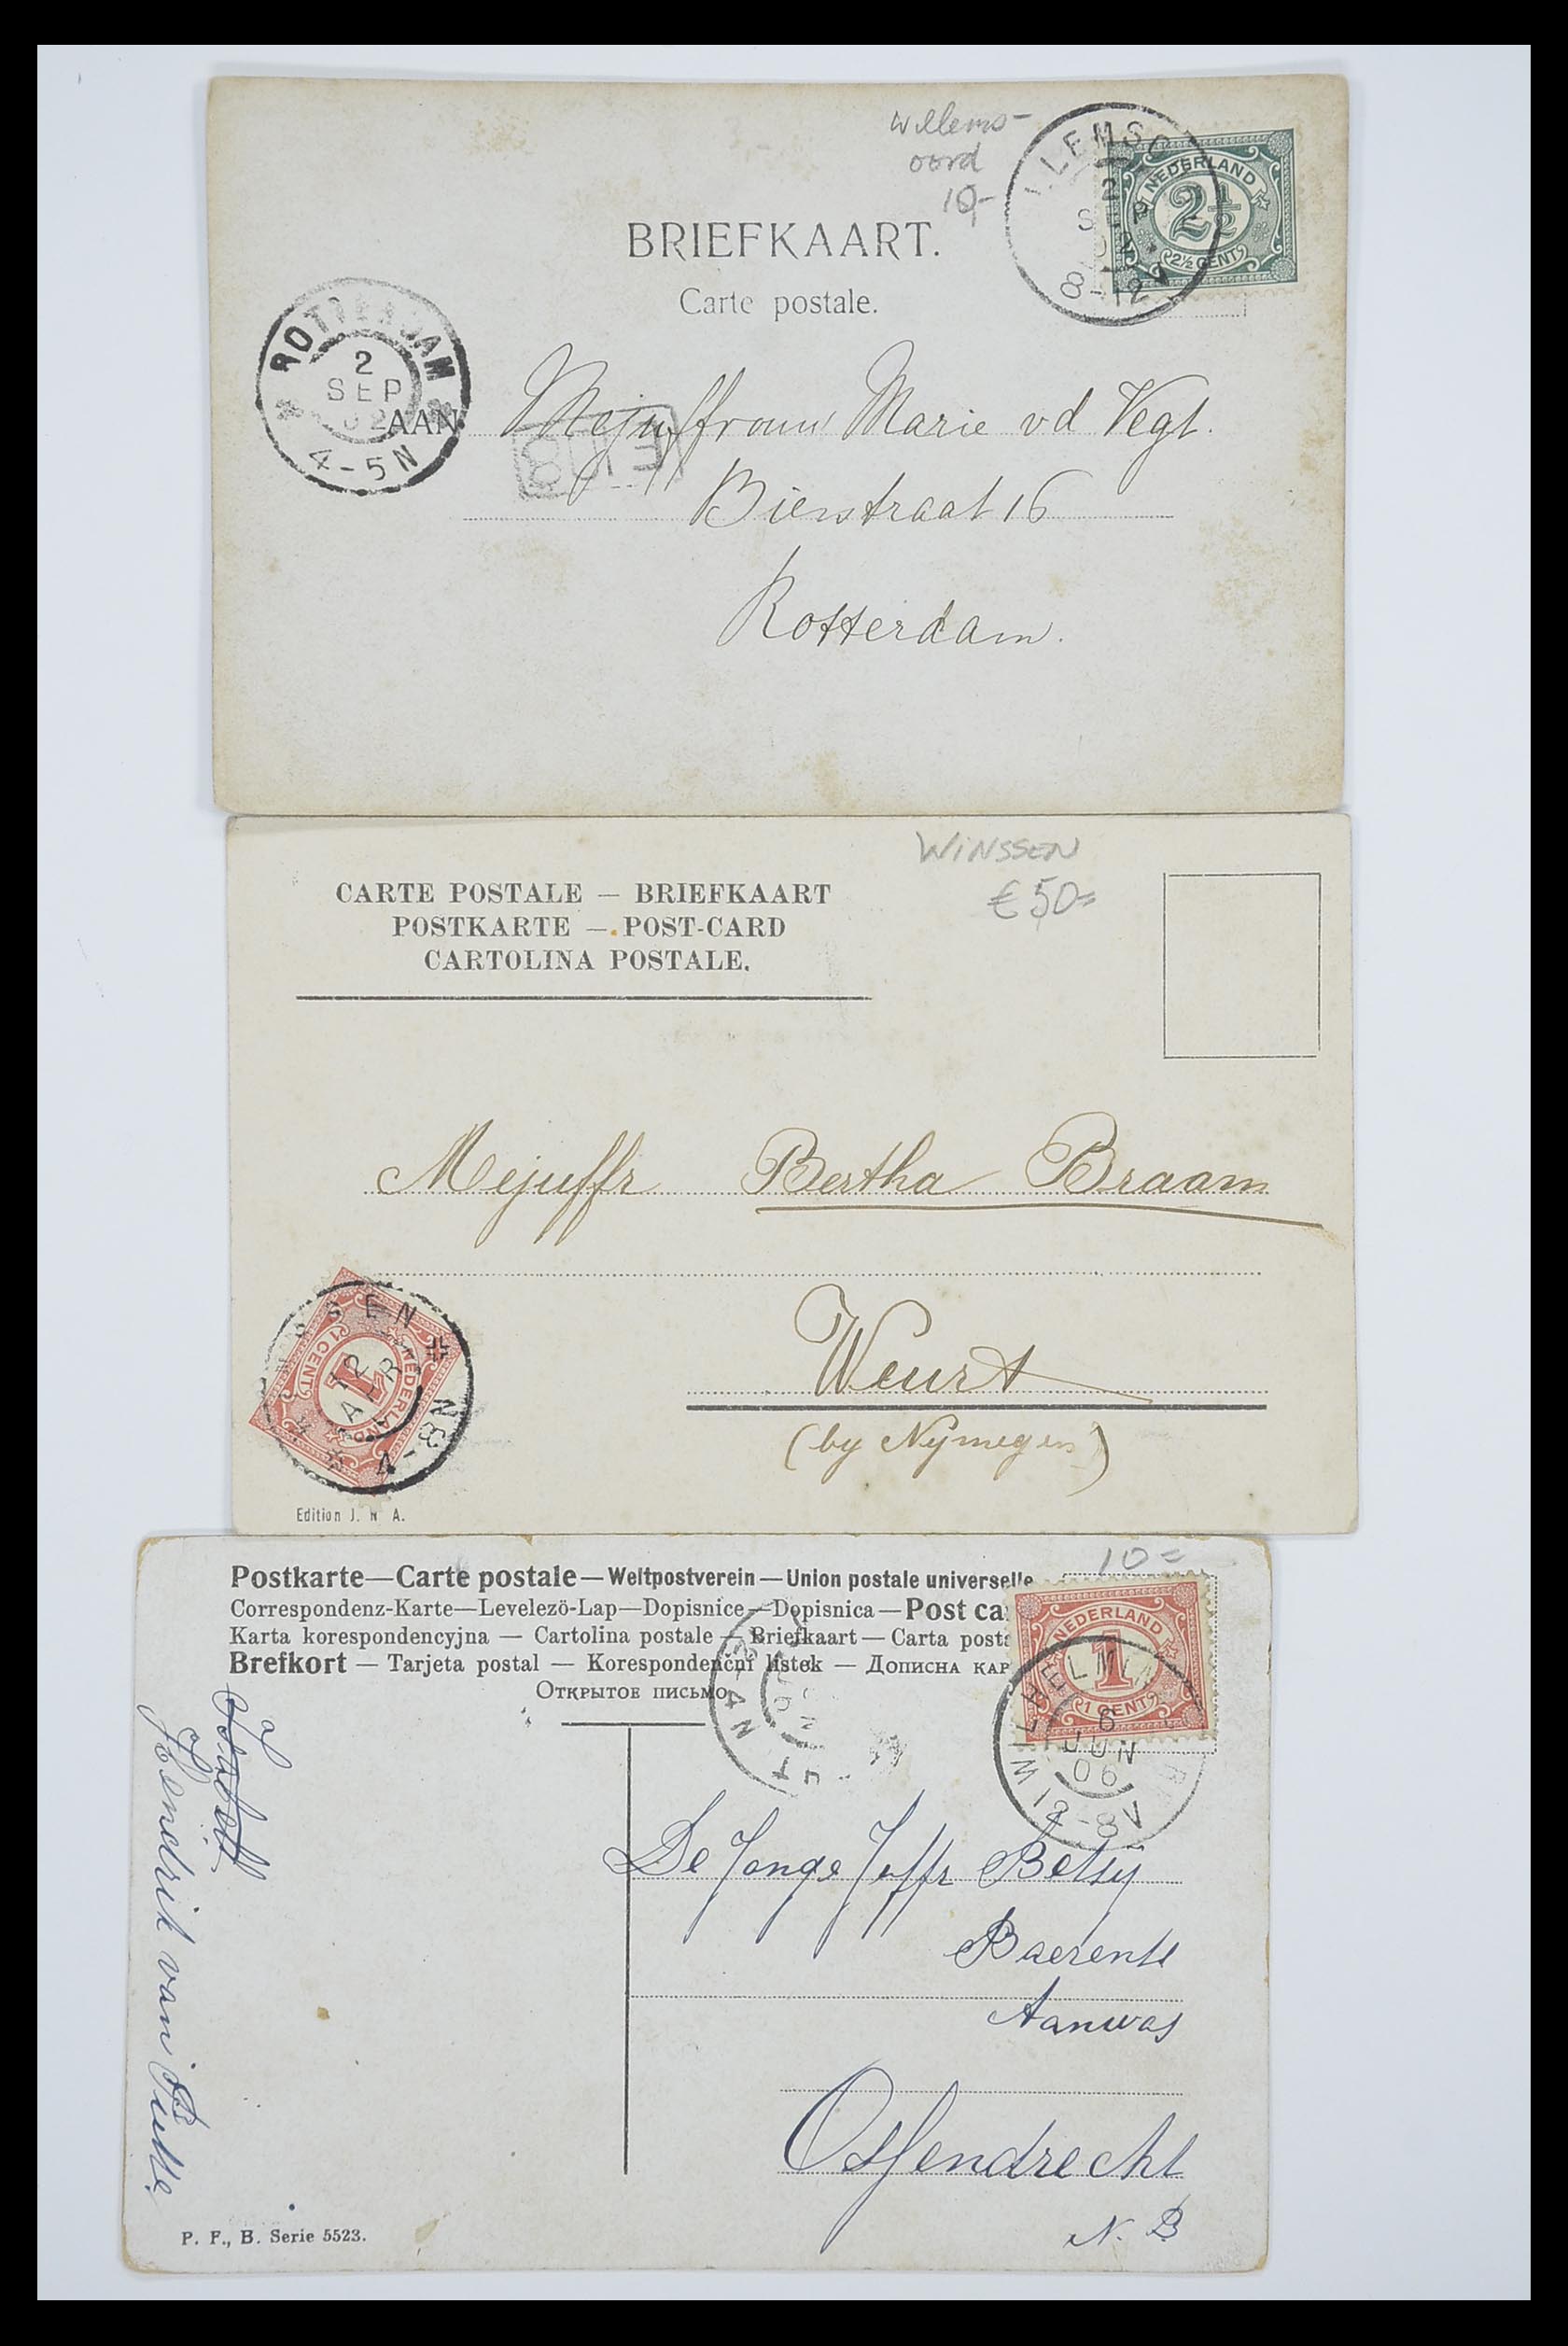 Willems-
oord
10,-
LLEMSO
2
SEP
02
8-12V
NEDERLAND
2½
2½ CENT
BRIEFKAART.
Carte postale.
ROTTERDAM
2
SEP
02
4-5N
AAN
Mejuffrouw Marie vd Vegt.
Bierstraat 16
Rotterdam.
WINSSEN
€50=
CARTE POSTALE — BRIEFKAART
POSTKARTE — POST-CARD
CARTOLINA POSTALE.
Mejuffr Bertha Braam
Weurt
(by Nymegen)
SSEN
12
APR
4-8N
NEDERLAND
1
1 CENT
Edition J. N A.
10=
Postkarte—Carte postale—Weltpostverein—Union postale universelle
Correspondenz-Karte—Levelező-Lap—Dopisnice—Dopisnica—Post ca
Karta korespondencyjna — Cartolina postale — Briefkaart — Carta posta
Brefkort — Tarjeta postal — Korespondenční lístek — Дописна кар
Открытое письмо
NEDERLAND
1
1 CENT
WILHELMINA
6
JUN
06
12-8V
4N
De Jonge Juffr Betsy
Baerents
Aanwas
Ossendrecht
N. B
Hendrik van Putte
P. F., B. Serie 5523.